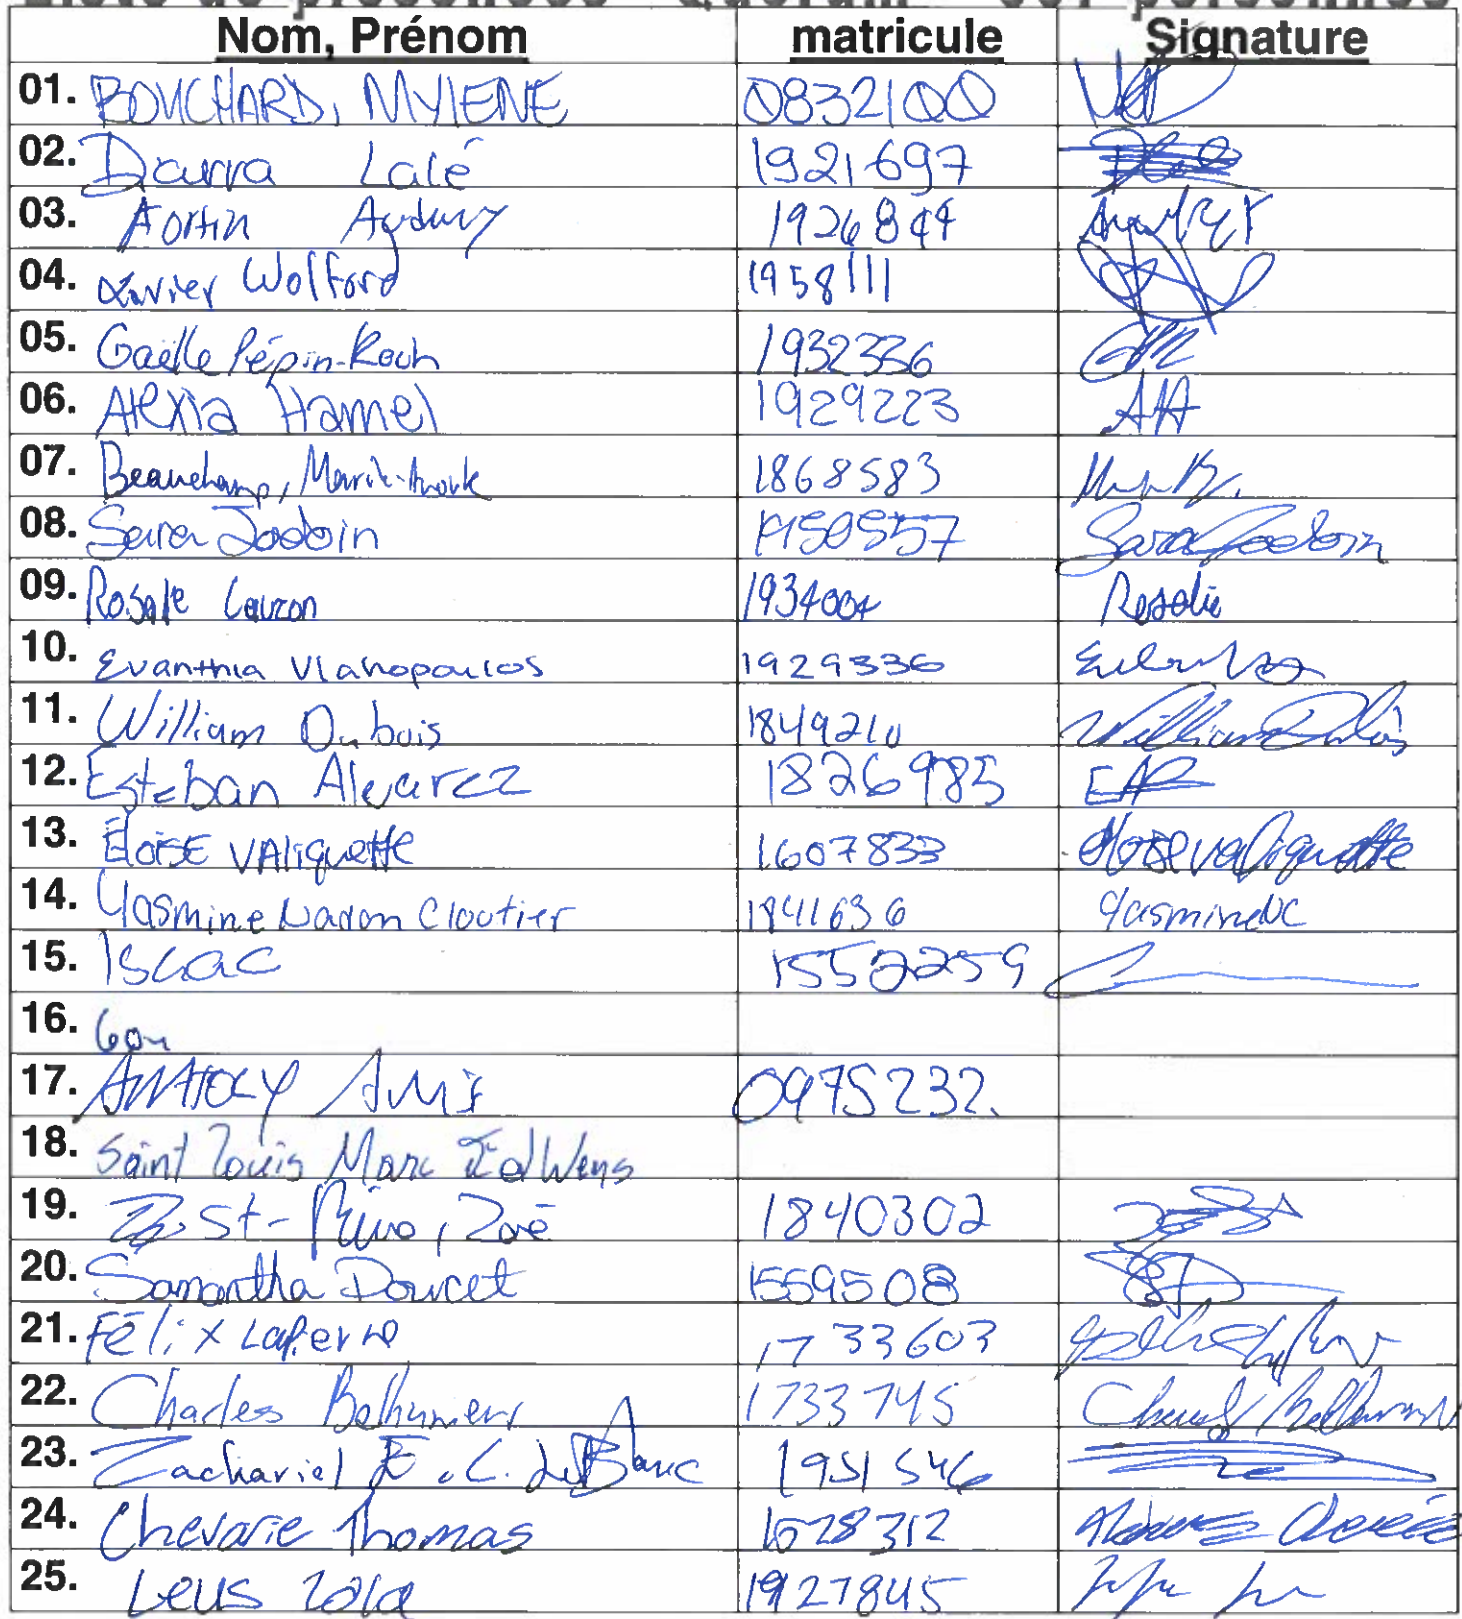 Nom, Prénom matricule Signature
01. BOUCHARD, MYLENE 0832100
02. Darra Lalé 1921697
03. Fortin Audrey 1926844
04. Xavier Wolford 1958111
05. Gaëlle Pépin-Roch 1932336
06. Alexia Hamel 1929223 AH
07. Beauchamp, Marie-Anouk 1868583
08. Sara Jodoin 1950557 Sara Jodoin
09. Rosalie Lauzon 1934004 Rosalie
10. Evanthia Vlahopoulos 1929336
11. William Dubois 1849210 William Dubois
12. Esteban Alvarez 1826985 EAR
13. ÉloïSE VAliquette 1607833 Éloïse Valiquette
14. Yasmine Nadon Cloutier 1841636 YasmineNC
15. Isaac 1552259
16.
17. 0975232.
18. Saint Louis Marc Edwens
19. St- , Zoé 1840302
20. Samantha Doucet 1559508 SD
21. Félix Lapierre 1733603
22. Charles Belhumeur 1733745 Charles Belhumeur
23. Zachariel E .C. LeBlanc 1951546
24. Chevarie Thomas 1628312 Thomas
25. Leus 1927845